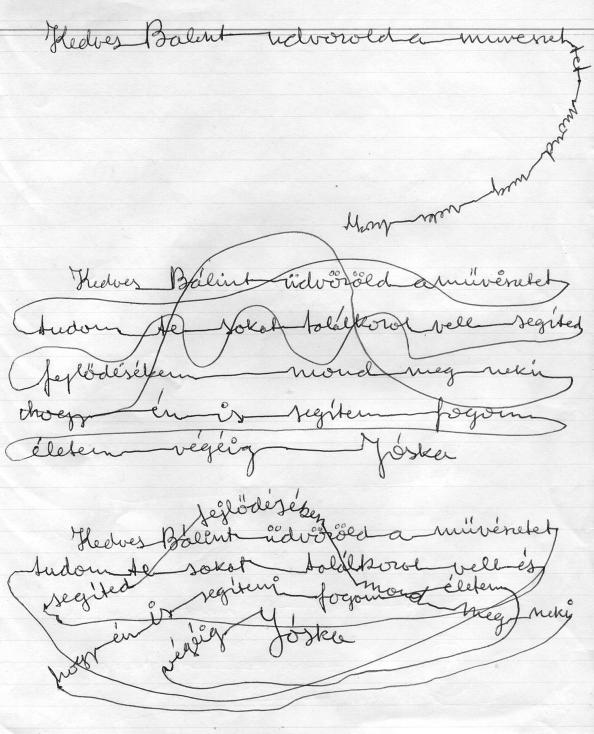 Kedves Balint udvorold a muveszet
tet mond meg
Kedves Bálint üdvözöld a művészetet
tudom te sokat találkozol vele segíted
fejlődésében mond meg neki
hogy én is segítem fogom
életem végéig Jóska
fejlődésében
Kedves Bálint üdvözöld a művészetet
tudom te sokat találkozol vele és
segíted mond életem
hogy én is segíteni fogom meg neki
végéig Jóska